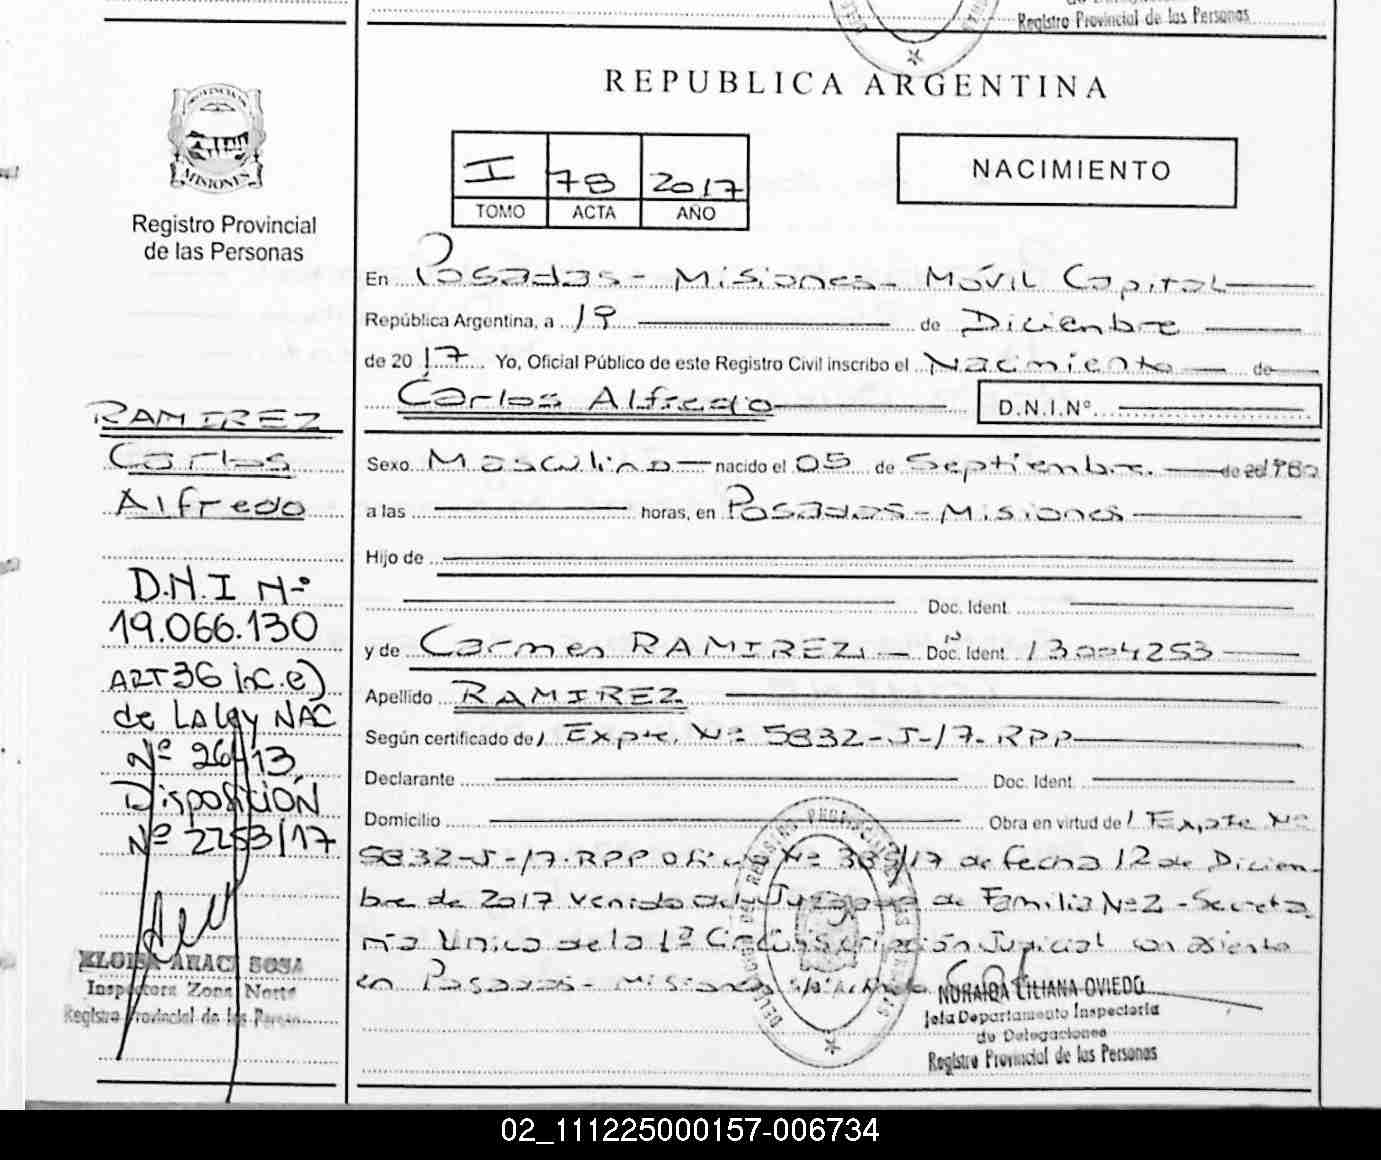 Registro Provincial de las Personas
REPUBLICA ARGENTINA
PROVINCIA DE
MISIONES
Registro Provincial
de las Personas
I 78 2017
TOMO ACTA AÑO
NACIMIENTO
En Posadas - Misiones - Móvil Capital
República Argentina, a 19 de Diciembre
de 2017 Yo, Oficial Público de este Registro Civil inscribo el Nacimiento de
Carlos Alfredo D.N.I.Nº
Sexo Masculino nacido el 05 de Septiembre de
a las horas, en Posadas - Misiones
Hijo de
Doc. Ident.
y de Carmen RAMIREZ Doc. Ident. 13004253
Apellido RAMIREZ
Según certificado de Expte. Nº 5832-J-17-RPP
Declarante Doc. Ident.
Domicilio Obra en virtud de Expte Nº
5832-J-17-RPP Oficio Nº de fecha 12 de Diciem-
bre de 2017 venido del Juzgado de Familia Nº2 - Secreta
ria Unica de la 1ª Circunscripción Judicial con asiento
en Posadas - Misiones
NORAIDA LILIANA OVIEDO
Jefa Departamento Inspectoria
de Delegaciones
Registro Provincial de las Personas
RAMIREZ
Carlos
Alfredo
D.N.I Nº
19.066.130
ART 36 inc.e)
de LA Ley NAC
Nº 26413,
Disposición
Nº 2253/17
ELOISA ARACI SOSA
Inspectora Zona Norte
Registro Provincial de las Personas
02_111225000157-006734